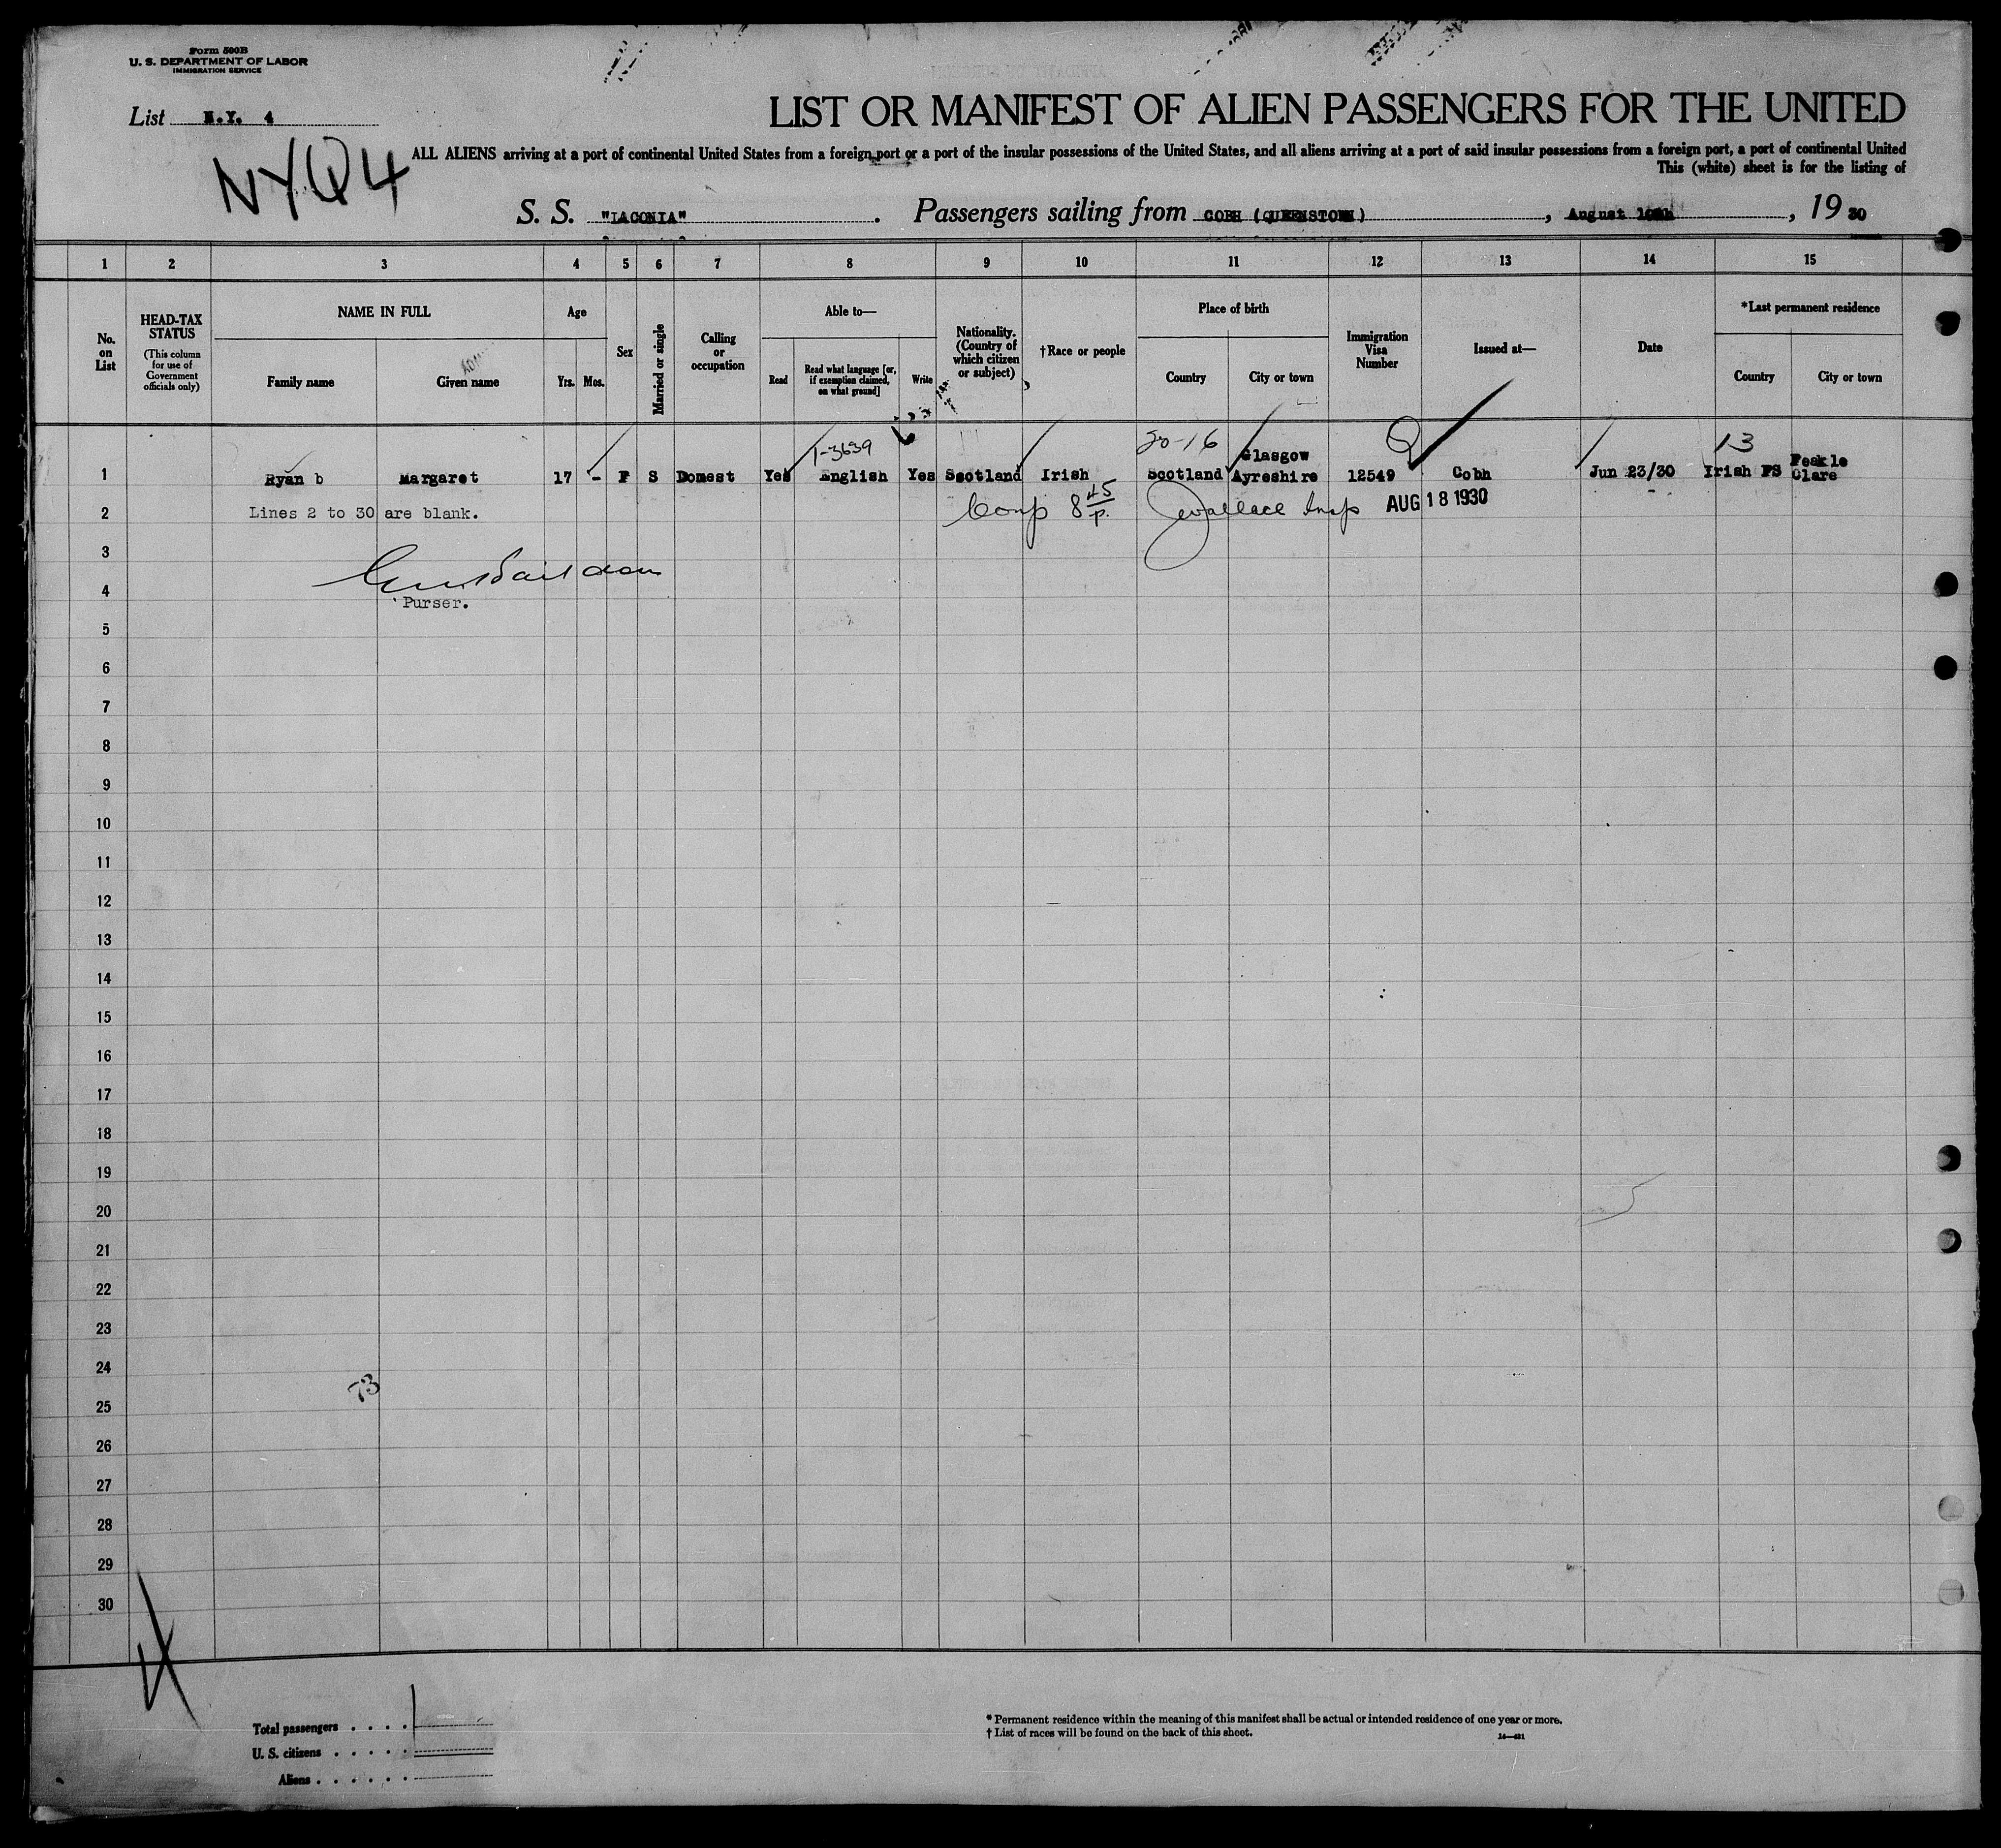 Form 500B
U. S. DEPARTMENT OF LABOR
IMMIGRATION SERVICE
List N.Y. 4
NYQ4
LIST OR MANIFEST OF ALIEN PASSENGERS FOR THE UNITED
ALL ALIENS arriving at a port of continental United States from a foreign port or a port of the insular possessions of the United States, and all aliens arriving at a port of said insular possessions from a foreign port, a port of continental United
This (white) sheet is for the listing of
S. S. "LACONIA" . Passengers sailing from COBH (QUEENSTOWN) , August 10th , 19 30
1 2 3 4 5 6 7 8 9 10 11 12 13 14 15
No. on List
HEAD-TAX STATUS (This column for use of Government officials only)
NAME IN FULL
Family name Given name
Age
Yrs. Mos.
Sex
Married or single
Calling or occupation
Able to—
Read Read what language [or, if exemption claimed, on what ground] Write
Nationality. (Country of which citizen or subject)
†Race or people
Place of birth
Country City or town
Immigration Visa Number
Issued at—
Date
*Last permanent residence
Country City or town
1-3639 20-16 Q 13
Glasgow Feakle
1 Ryan b Margaret 17 - F S Domest Yes English Yes Scotland Irish Scotland Ayreshire 12549 Cobh Jun 23/30 Irish FS Clare
2 Lines 2 to 30 are blank. Comp 8 45/p. Wallace Insp AUG 18 1930
3
4
Purser.
5
6
7
8
9
10
11
12
13
14
15
16
17
18
19
20
21
22
23
24
73
25
26
27
28
29
30
Total passengers . . . . 1
U. S. citizens . . . . .
Aliens . . . . . .
* Permanent residence within the meaning of this manifest shall be actual or intended residence of one year or more.
† List of races will be found on the back of this sheet.